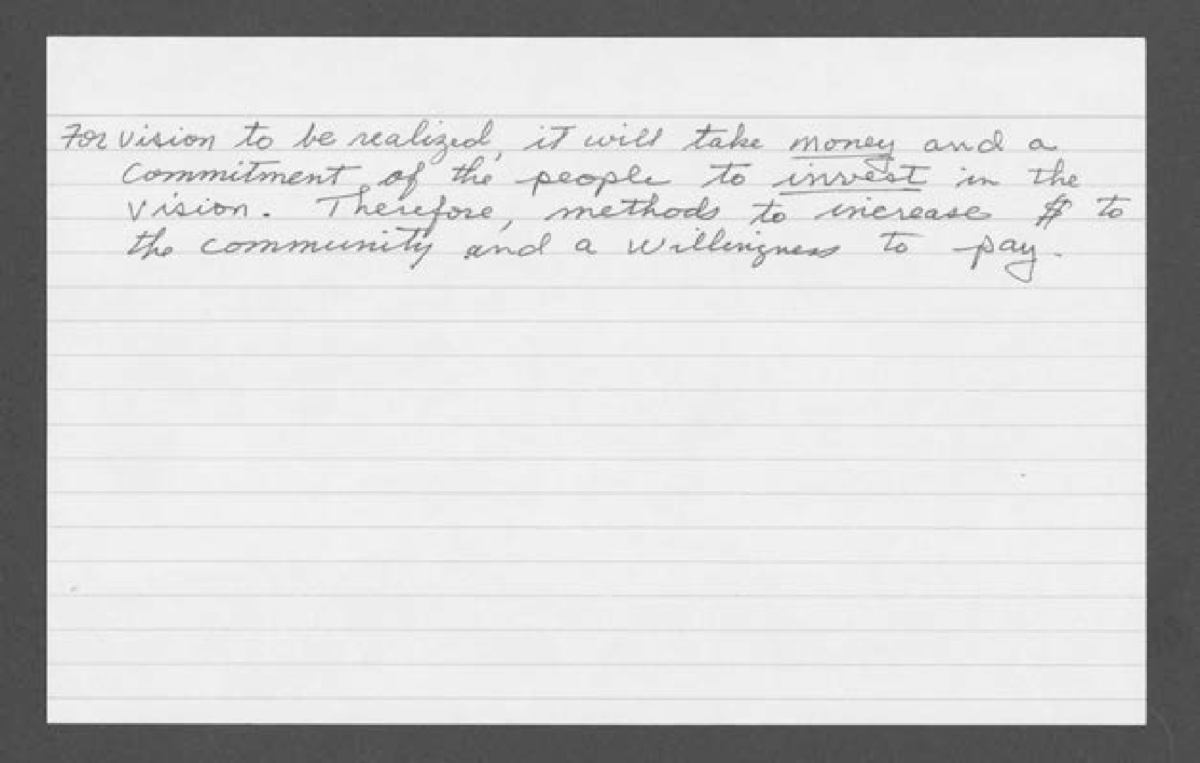 For vision to be realized, it will take money and a
Commitment of the people to invest in the
Vision. Therefore, methods to increase $ to
the community and a willingness to pay.